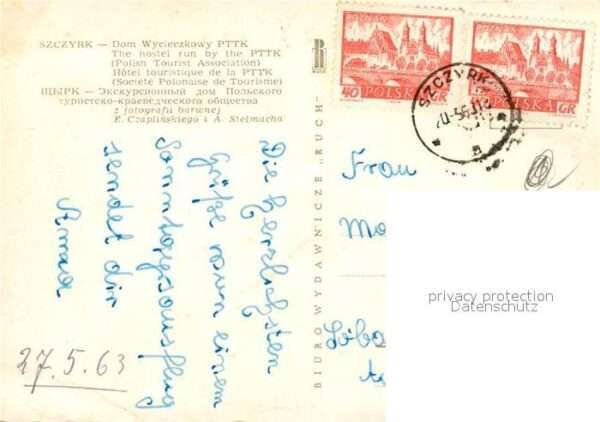 SZCZYRK — Dom Wycieczkowy PTTK
The hostel run by the PTTK
(Polish Tourist Association)
Hôtel touristique de la PTTK
(Société Polonaise de Tourisme)
ЩЫРК — Экскурсионный дом Польского
туристско-краеведческого общества
z fotografii barwnej
E. Czaplińskiego i A. Stelmacha
Die herzlichsten
Grüße von einem
Sonntagsausflug
sendet dir
27.5.63
BIURO WYDAWNICZE „RUCH"
POZNAŃ
40 POLSKA GR
POZNAŃ
POLSKA GR
SZCZYRK
Frau
Ma
Löba
privacy protection
Datenschutz